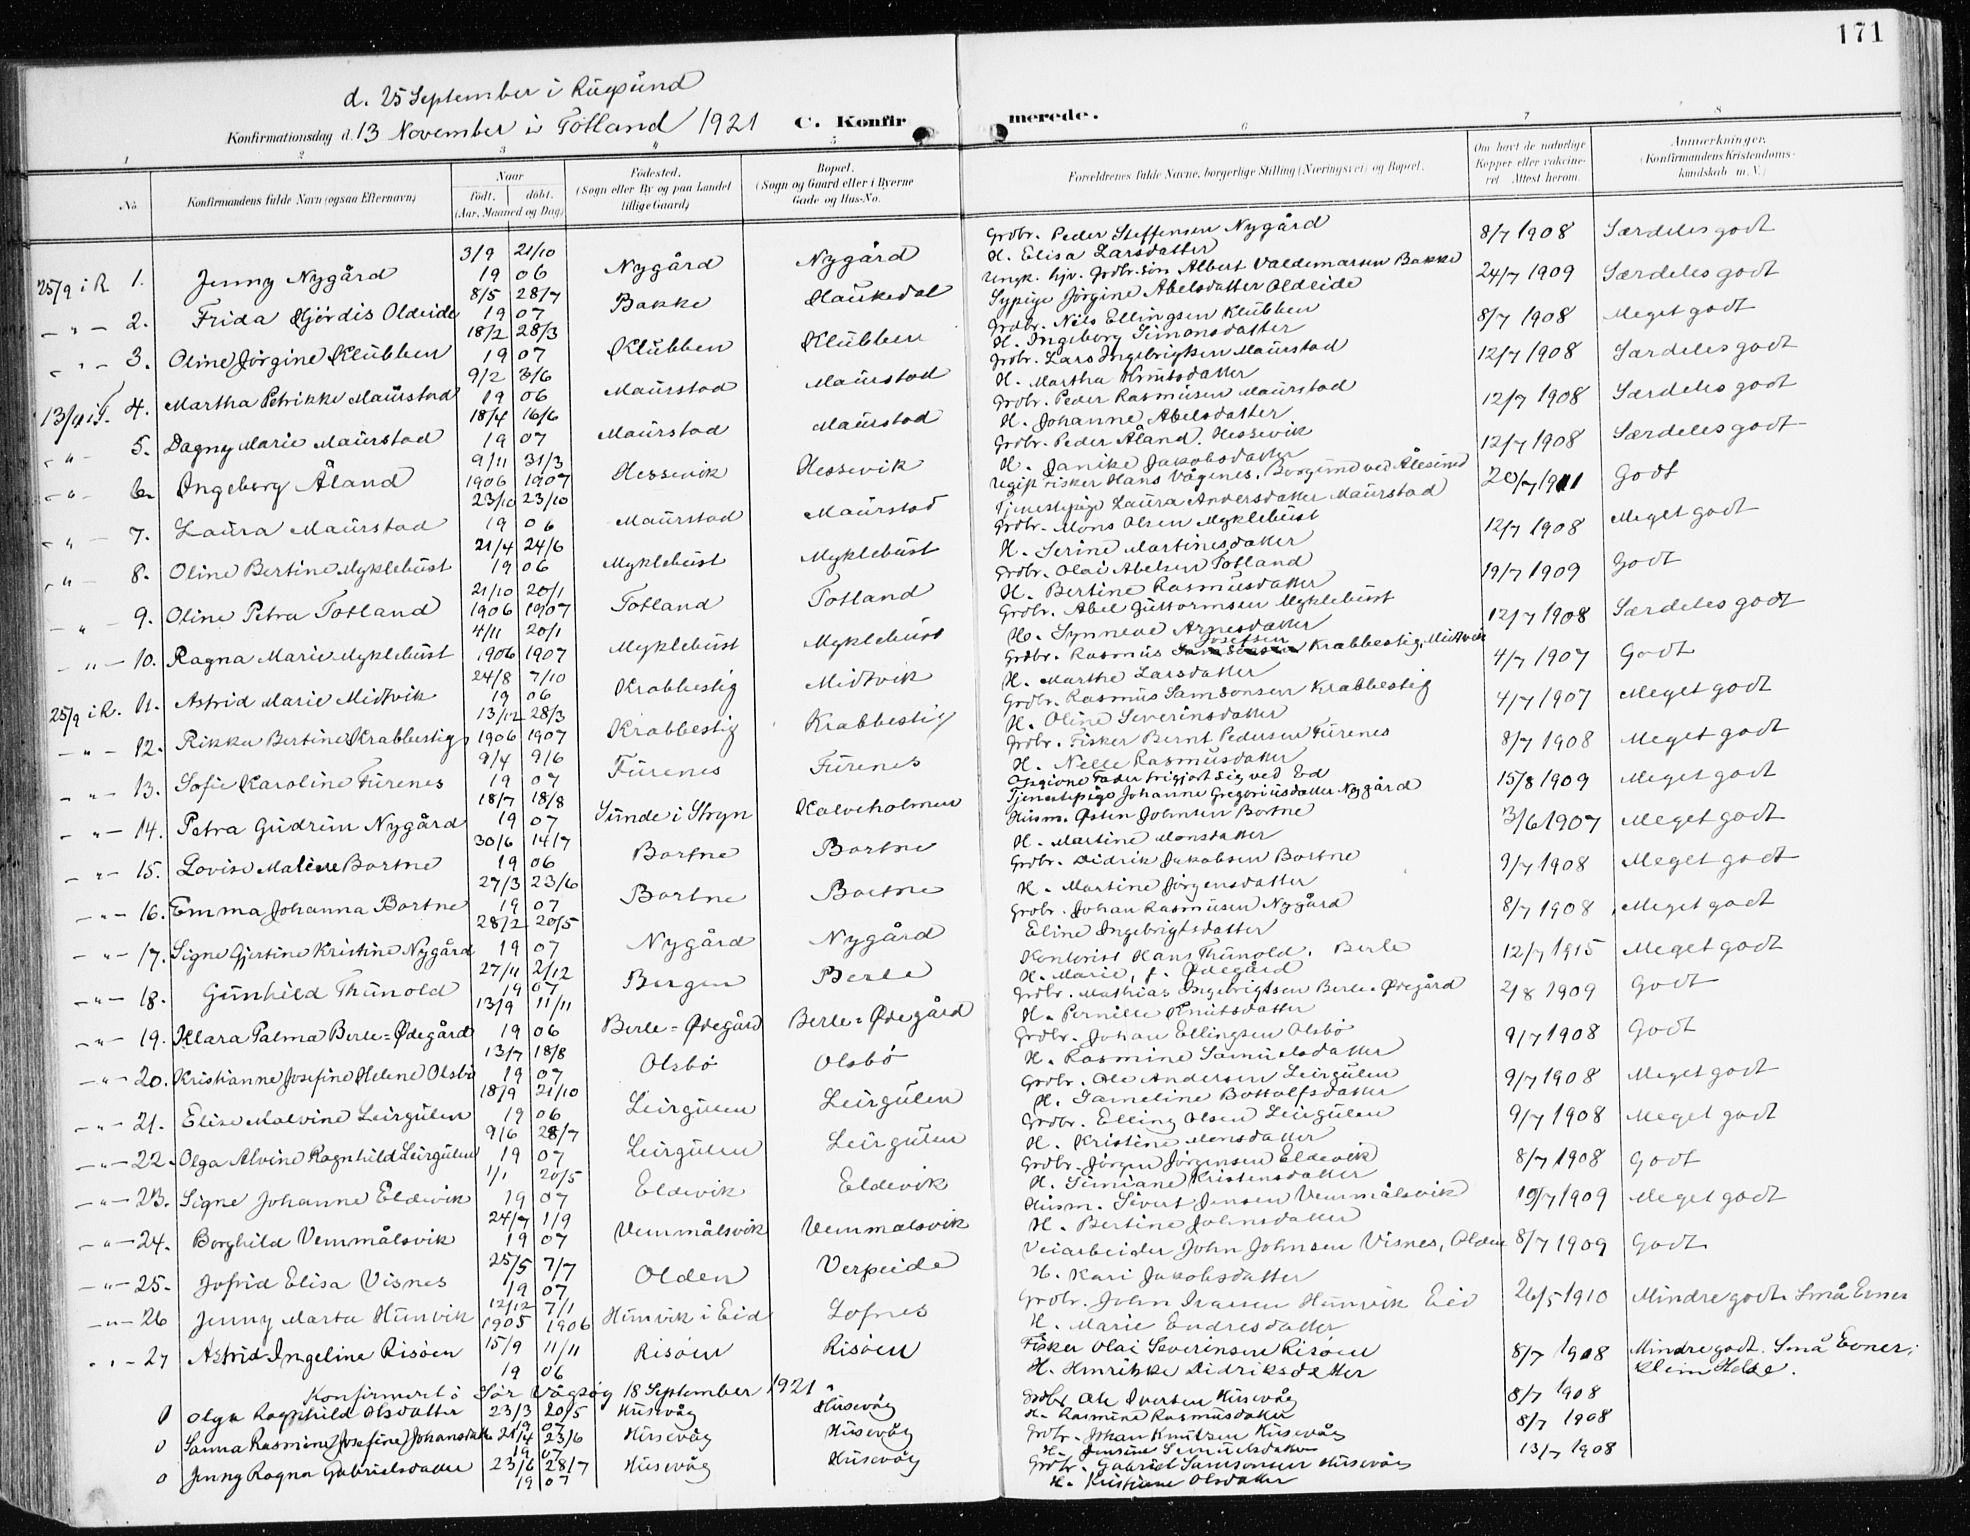 171
d. 25 September i Rugsund
Konfirmationsdag d. 13 November i Totland 1921 C. Konfirmerede.
1 2 3 4 5 6 7 8
No. Konfirmandens fulde Navn (ogsaa Efternavn) Naar født. døbt. (Aar, Maaned og Dag) Fødested. (Sogn eller By og paa Landet tillige Gaard) Bopæl. (Sogn og Gaard eller i Byerne Gade og Hus-No. Forældrenes fulde Navne, borgerlige Stilling (Næringsvei) og Bopæl. Om havt de naturlige Kopper eller vaccineret. Attest herom. Anmærkninger. (Konfirmandens Kristendomskundskab m. V.)
25/9 i R. 1. Jenny Nygård 3/9 21/10 19 06 Nygård Nygård Grdbr. Peder Steffensen Nygård H. Elisa Larsdatter 8/7 1908 Særdeles godt
- " - 2. Frida Hjördis Oldeide 8/5 28/7 19 07 Bakke Haukedal Ungk. hjv. Grdbr.søn Albert Valdemarsen Bakke Sypige Jørgine Abelsdatter Oldeide 24/7 1909 Særdeles godt
- " - 3. Oline Jörgine Klubben 18/2 28/3 19 07 Klubben Klubben Grdbr. Nils Ellingsen Klubben H. Ingeborg Simonsdatter 8/7 1908 Meget godt
13/11 i T. 4. Martha Petrikke Maurstad 9/2 3/6 19 06 Maurstad Maurstad Grdbr. Lars Ingebrigtsen Maurstad H. Martha Knutsdatter 12/7 1908 Særdeles godt
- " - 5. Dagny Marie Maurstad 18/4 16/6 19 07 Maurstad Maurstad Grdbr. Peder Rasmusen Maurstad H. Johanne Abelsdatter 12/7 1908 Særdeles godt
- " - 6. Ingeborg Åland 9/11 31/3 1906 1907 Hessevik Hessevik Grdbr. Peder Åland, Hessevik H. Janike Jakobsdatter 12/7 1908 Særdeles godt
- " - 7. Laura Maurstad 23/10 23/10 19 06 Maurstad Maurstad Ugift Fisker Hans Vågenes, Borgund ved Ålesund Tjenestepige Laura Andersdatter Maurstad 20/7 1911 Godt
- " - 8. Oline Bertine Myklebust 21/4 24/6 19 06 Myklebust Myklebust Grdbr. Mons Olsen Myklebust H. Serine Martinesdatter 12/7 1908 Meget godt
- " - 9. Oline Petra Totland 21/10 20/1 1906 1907 Totland Totland Grdbr. Olai Abelsen Totland H. Bertine Rasmusdatter 19/7 1909 Godt
- " - 10. Ragna Marie Myklebust 4/11 20/1 1906 1907 Myklebust Myklebust Grdbr. Abel Guttormsen Myklebust H. Synneve Arnesdatter 12/7 1908 Særdeles godt
25/9 i R. 11. Astrid Marie Midtvik 24/8 7/10 19 06 Krabbestig Midtvik Grdbr. Rasmus Josefsen Krabbestig, Midtvik H. Marthe Larsdatter 4/7 1907 Godt
- " - 12. Rikka Bertine Krabbestig 13/12 28/3 1906 1907 Krabbestig Krabbestig Grdbr. Rasmus Samsonsen Krabbestig H. Oline Severinsdatter 4/7 1907 Meget godt
- " - 13. Sofie Karoline Furenes 9/4 9/6 19 07 Furenes Furenes Grdbr. Fisker Bernt Pedersen Furenes H. Nelle Rasmusdatter 8/7 1908 Meget godt
- " - 14. Petra Gudrun Nygård 18/7 18/8 19 07 Sunde i Stryn Kalveholmen Opgivne Fader frigjort sig ved Ed Tjenestepige Johanne Gregoriusdatter Nygård 15/8 1909 Meget godt
- " - 15. Lovise Malene Bortne 30/6 14/7 19 06 Bortne Bortne Husm. Østen Johnsen Bortne H. Martine Monsdatter 13/6 1907 Meget godt
- " - 16. Emma Johanna Bortne 27/3 23/6 19 07 Bortne Bortne Grdbr. Didrik Jakobsen Bortne H. Martine Jörgensdatter 9/7 1908 Meget godt
- " - 17. Signe Gjertine Kristine Nygård 28/2 20/5 19 07 Nygård Nygård Grdbr. Johan Rasmusen Nygård Eline Ingebrigtsdatter 8/7 1908 Meget godt
- " - 18. Gunhild Thunold 27/11 2/12 19 07 Bergen Berle Kontorist Hans Thunold, Berle H. Marie, f. Ødegård 12/7 1915 Meget godt
- " - 19. Klara Palma Berle=Ødegård 13/9 11/11 19 06 Berle=Ødegård Berle=Ødegård Grdbr. Mathias Ingebrigtsen Berle-Ødegård H. Pernille Knutsdatter 2/8 1909 Godt
- " - 20. Kristianne Josefine Helene Olsbö 13/7 18/8 19 07 Olsbö Olsbö Grdbr. Johan Ellingsen Olsbö H. Rasmine Samuelsdatter 9/7 1908 Godt
- " - 21. Elise Malvine Leirgulen 18/9 21/10 19 06 Leirgulen Leirgulen Grdbr. Ole Andersen Leirgulen H. Jameline Bottolfsdatter 9/7 1908 Meget godt
- " - 22. Olga Alvine Ragnhild Leirgulen 9/6 28/7 19 07 Leirgulen Leirgulen Grdbr. Elling Olsen Leirgulen H. Kristine Monsdatter 9/7 1908 Meget godt
- " - 23. Signe Johanne Eldevik 1/1 20/5 19 07 Eldevik Eldevik Grdbr. Jörgen Jörgensen Eldevik H. Simiane Kristensdatter 8/7 1908 Godt
- " - 24. Borghild Vemmålsvik 24/7 1/9 19 07 Vemmålsvik Vemmalsvik Husm. Sivert Jensen Vemmålsvik H. Bertine Johnsdatter 19/7 1909 Meget godt
- " - 25. Jofrid Elisa Visnes 25/5 7/7 19 07 Olden Verpeide Veiarbeider John Johnsen Visnes, Olden H. Kari Jakobsdatter 8/7 1909 Godt
- " - 26 Jenny Marta Hunvik 12/12 7/1 1905 1906 Hunvik i Eid Lofnes Grdbr. John Ivarsen Hunvik Eid H. Marie Endresdatter 26/5 1910 Mindre godt. Små Evner
- " - 27 Astrid Ingeline Risöen 15/9 11/11 19 06 Risöen Risöen Fisker Olai Severinsen Risöen H. Henrikke Didriksdatter 8/7 1908 Mindre godt. Små Evner;
Konfirmeret i Sør Vågsøy 18 September 1921.
0 Olga Ragnhild Olsdatter 23/3 20/5 19 07 Husevåg Husevåg Grdbr Ole Iversen Husevåg H. Rasmine Rasmusdatter 8/7 1908
0 Sanna Rasmine Josefine Johansdatt 21/4 23/6 19 07 Husevåg Husevåg Grdbr. Johan Knutsen Husevåg H. Jensine Samuelsdatter 8/7 1908
0 Jenny Ragna Gabrielsdatter 23/6 28/7 19 07 Husevåg Husevåg Grdbr. Gabriel Samsonsen Husevåg H. Kristiane Olsdatter 13/7 1908